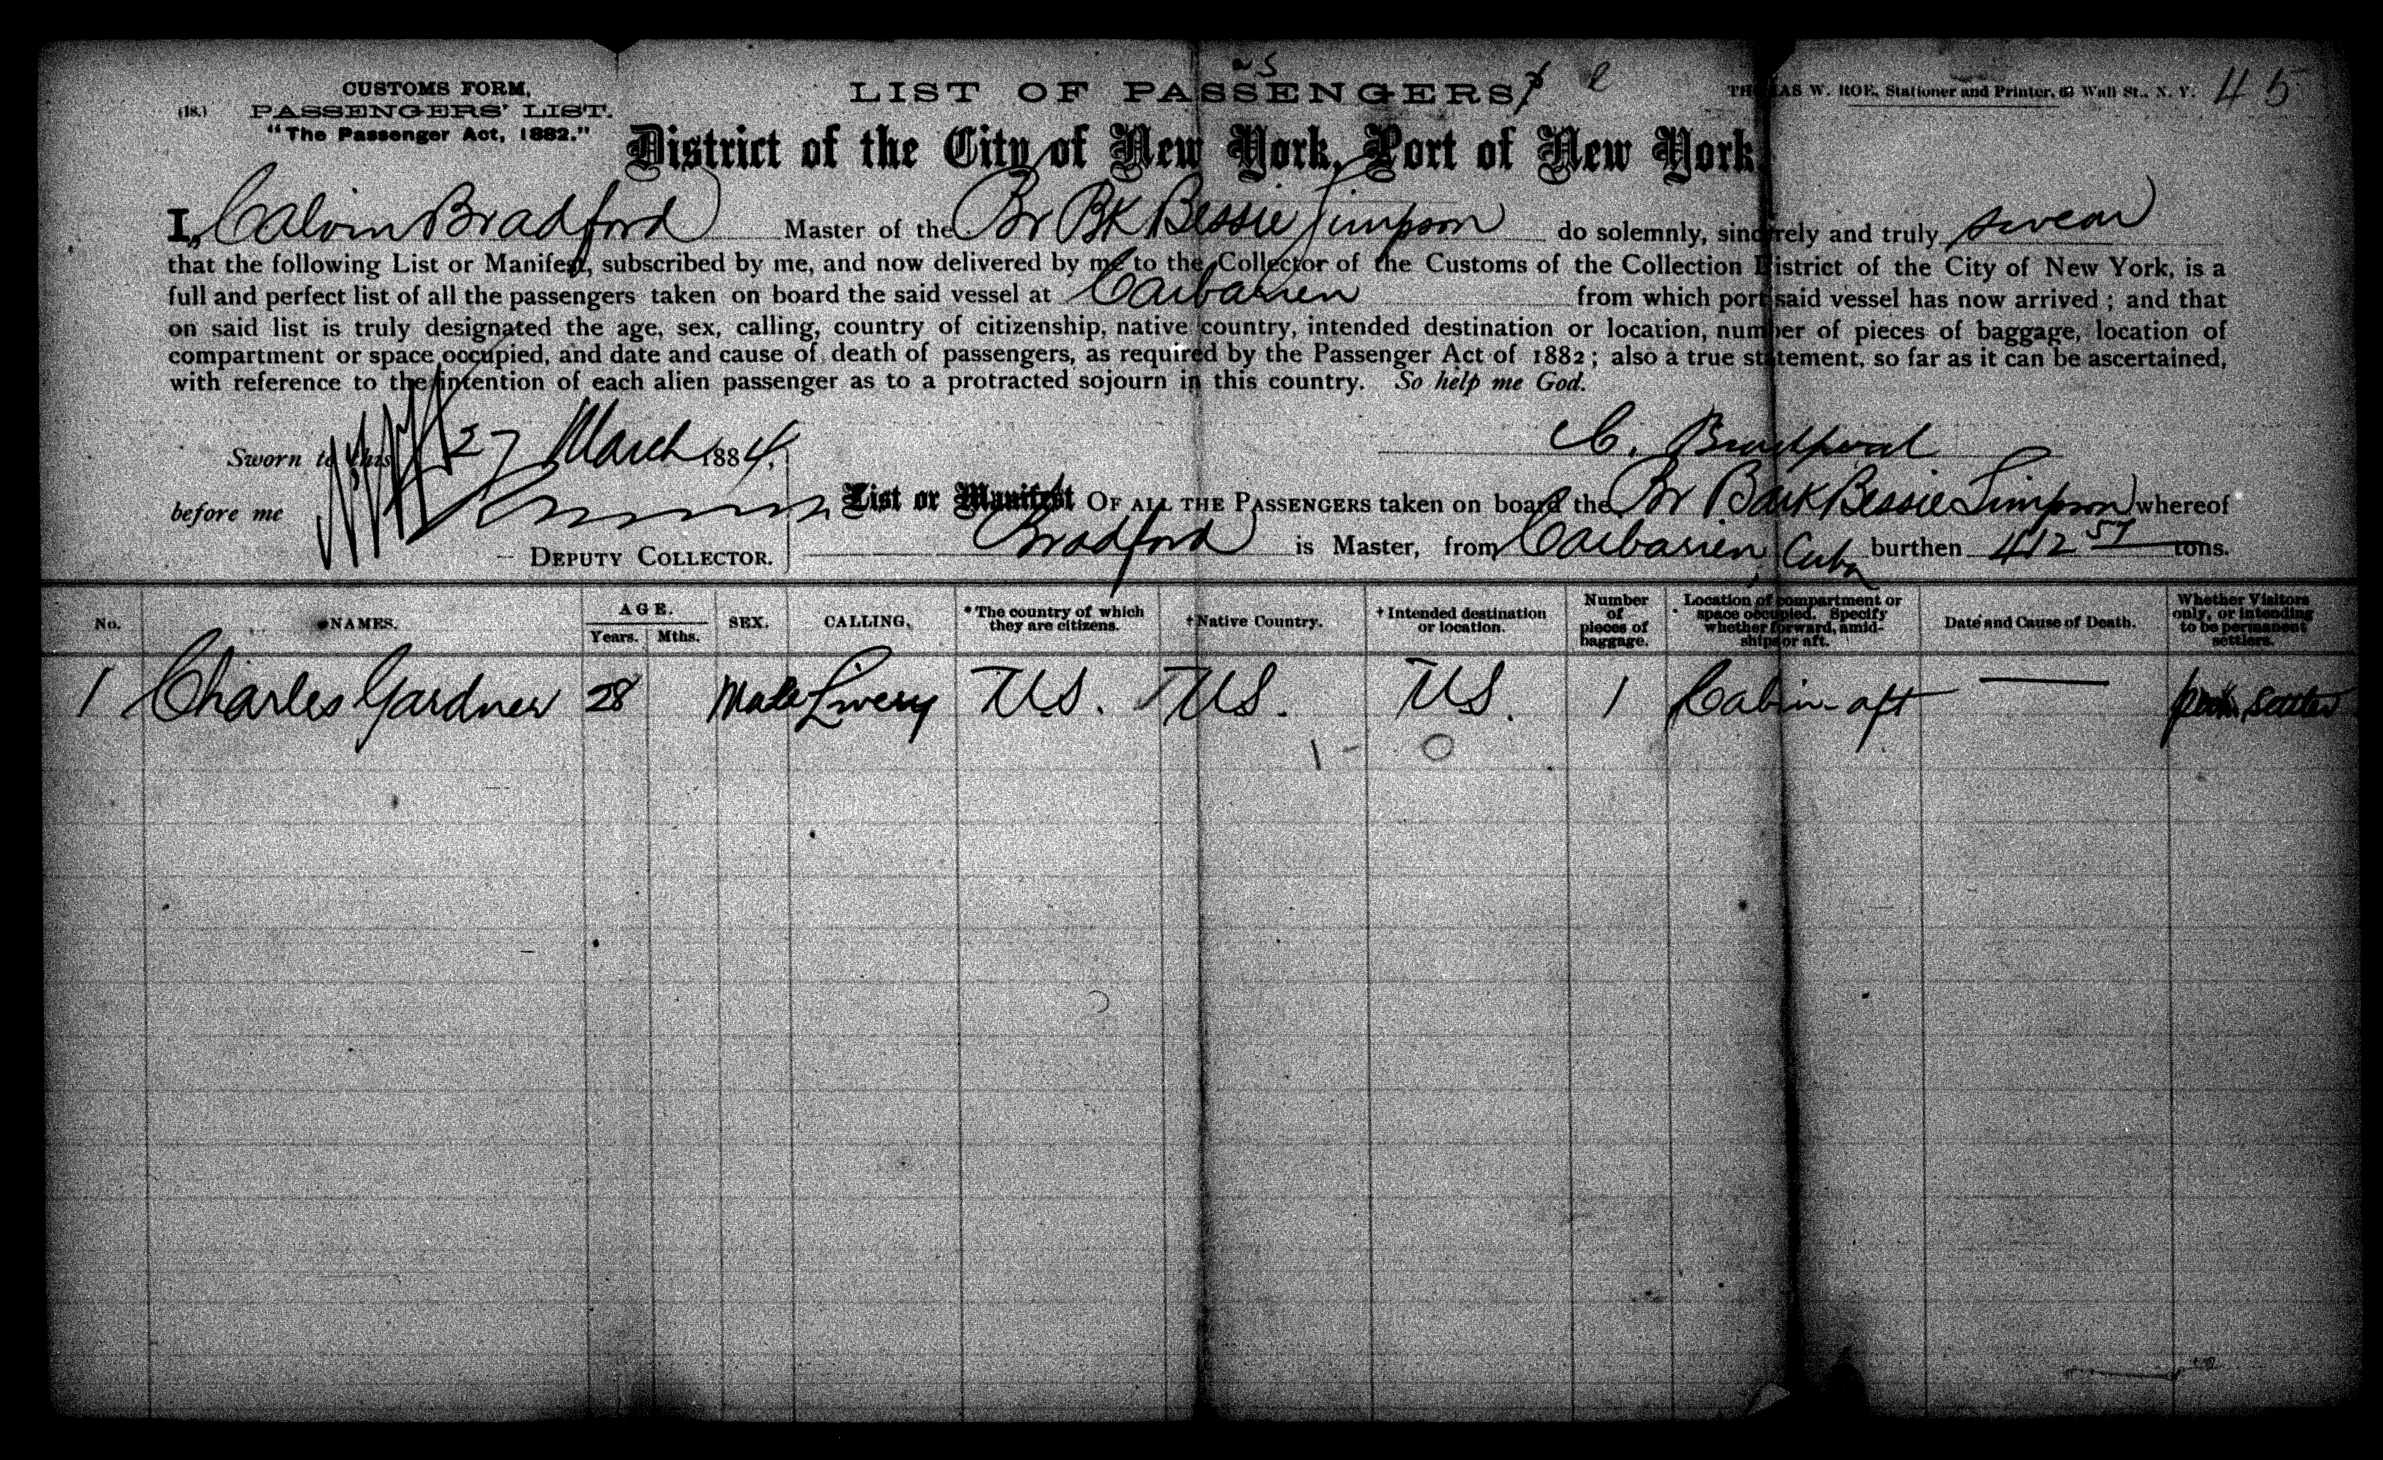 CUSTOMS FORM,
(18.) PASSENGERS' LIST.
"The Passenger Act, 1882."
LIST OF PASSENGERS
THOMAS W. ROE, Stationer and Printer, 63 Wall St., N. Y.
45
District of the City of New York, Port of New York
I, Calvin Bradford Master of the Br Bk Bessie Simpson do solemnly, sincerely and truly swear
that the following List or Manifest, subscribed by me, and now delivered by me to the Collector of the Customs of the Collection District of the City of New York, is a
full and perfect list of all the passengers taken on board the said vessel at Caibarien from which port said vessel has now arrived; and that
on said list is truly designated the age, sex, calling, country of citizenship, native country, intended destination or location, number of pieces of baggage, location of
compartment or space occupied, and date and cause of death of passengers, as required by the Passenger Act of 1882; also a true statement, so far as it can be ascertained,
with reference to the intention of each alien passenger as to a protracted sojourn in this country. So help me God.
Sworn to this 27 March 1884,
C. Bradford
before me
List or Manifest OF ALL THE PASSENGERS taken on board the Br Bark Bessie Simpson whereof
DEPUTY COLLECTOR.
Bradford is Master, from Caibarien, Cuba burthen 412 57 tons.
No. NAMES. AGE. Years. Mths. SEX. CALLING. *The country of which they are citizens. †Native Country. †Intended destination or location. Number of pieces of baggage. Location of compartment or space occupied. Specify whether forward, amidships or aft. Date and Cause of Death. Whether Visitors only, or intending to be permanent settlers.
1 Charles Gardner 28 Male Livery U.S. U.S. U.S. 1 Cabin aft — settler
1 - 0